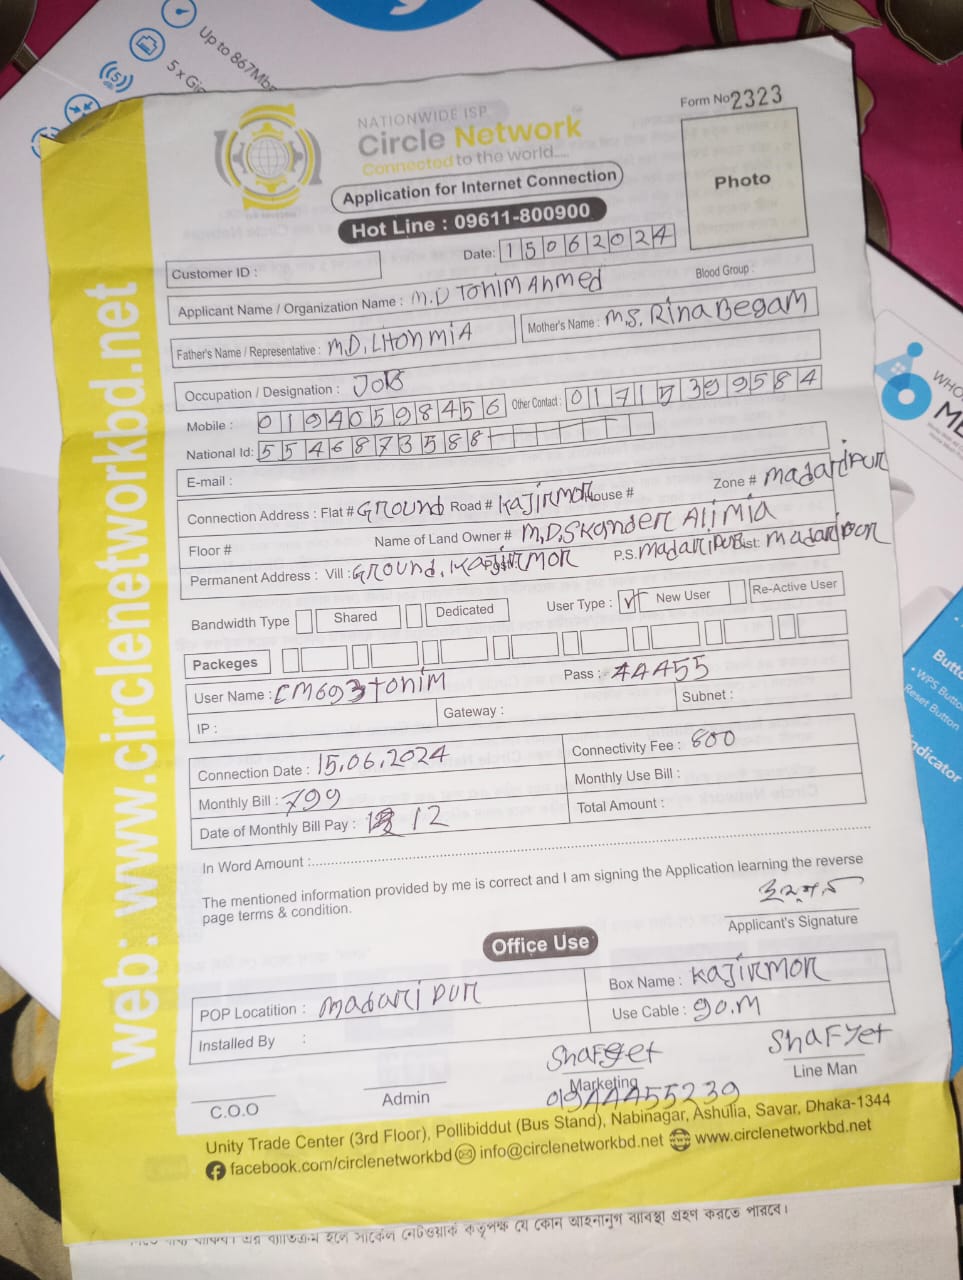 Up to 867Mb
5 x Gig
Form No 2323
NATIONWIDE ISP
Circle Network
Connected to the world....
Application for Internet Connection
Hot Line : 09611-800900
Photo
Date: 15062024
Customer ID :
Applicant Name / Organization Name : M.D Tohim Ahmed
Blood Group :
Father's Name / Representative : M.D. Litoh MiA
Mother's Name : M.S. Rina Begam
Occupation / Designation : JOB
Mobile : 01940598456 Other Contact : 01715399584
National Id: 5546873588
E-mail :
Connection Address : Flat # Ground Road # Kajirmor House # Zone # Madaripur
Floor # Name of Land Owner # M.D Skander Alimia
Permanent Address : Vill : Ground, Kajirmor P.S. Madaripur Dist: Madaripur
Bandwidth Type Shared Dedicated User Type : New User Re-Active User
Packeges
User Name : CM693tohim Pass : 44455
IP : Gateway : Subnet :
Connection Date : 15.06.2024 Connectivity Fee : 800
Monthly Bill : 799 Monthly Use Bill :
Date of Monthly Bill Pay : 12 Total Amount :
In Word Amount :
The mentioned information provided by me is correct and I am signing the Application learning the reverse
page terms & condition.
Applicant's Signature
Office Use
POP Locatition : Madaripur Box Name : Kajirmor
Installed By : Use Cable : 90.M
Shafyet Shafyet
C.O.O Admin Marketing Line Man
01944455239
Unity Trade Center (3rd Floor), Pollibiddut (Bus Stand), Nabinagar, Ashulia, Savar, Dhaka-1344
facebook.com/circlenetworkbd info@circlenetworkbd.net www.circlenetworkbd.net
web: www.circlenetworkbd.net
সার্কেল নেটওয়ার্ক কতৃপক্ষ যে কোন আইনানুগ ব্যাবস্থা গ্রহণ করতে পারবে।
WHO
ME
Butto
• WPS Butto
Reset Button
ndicator